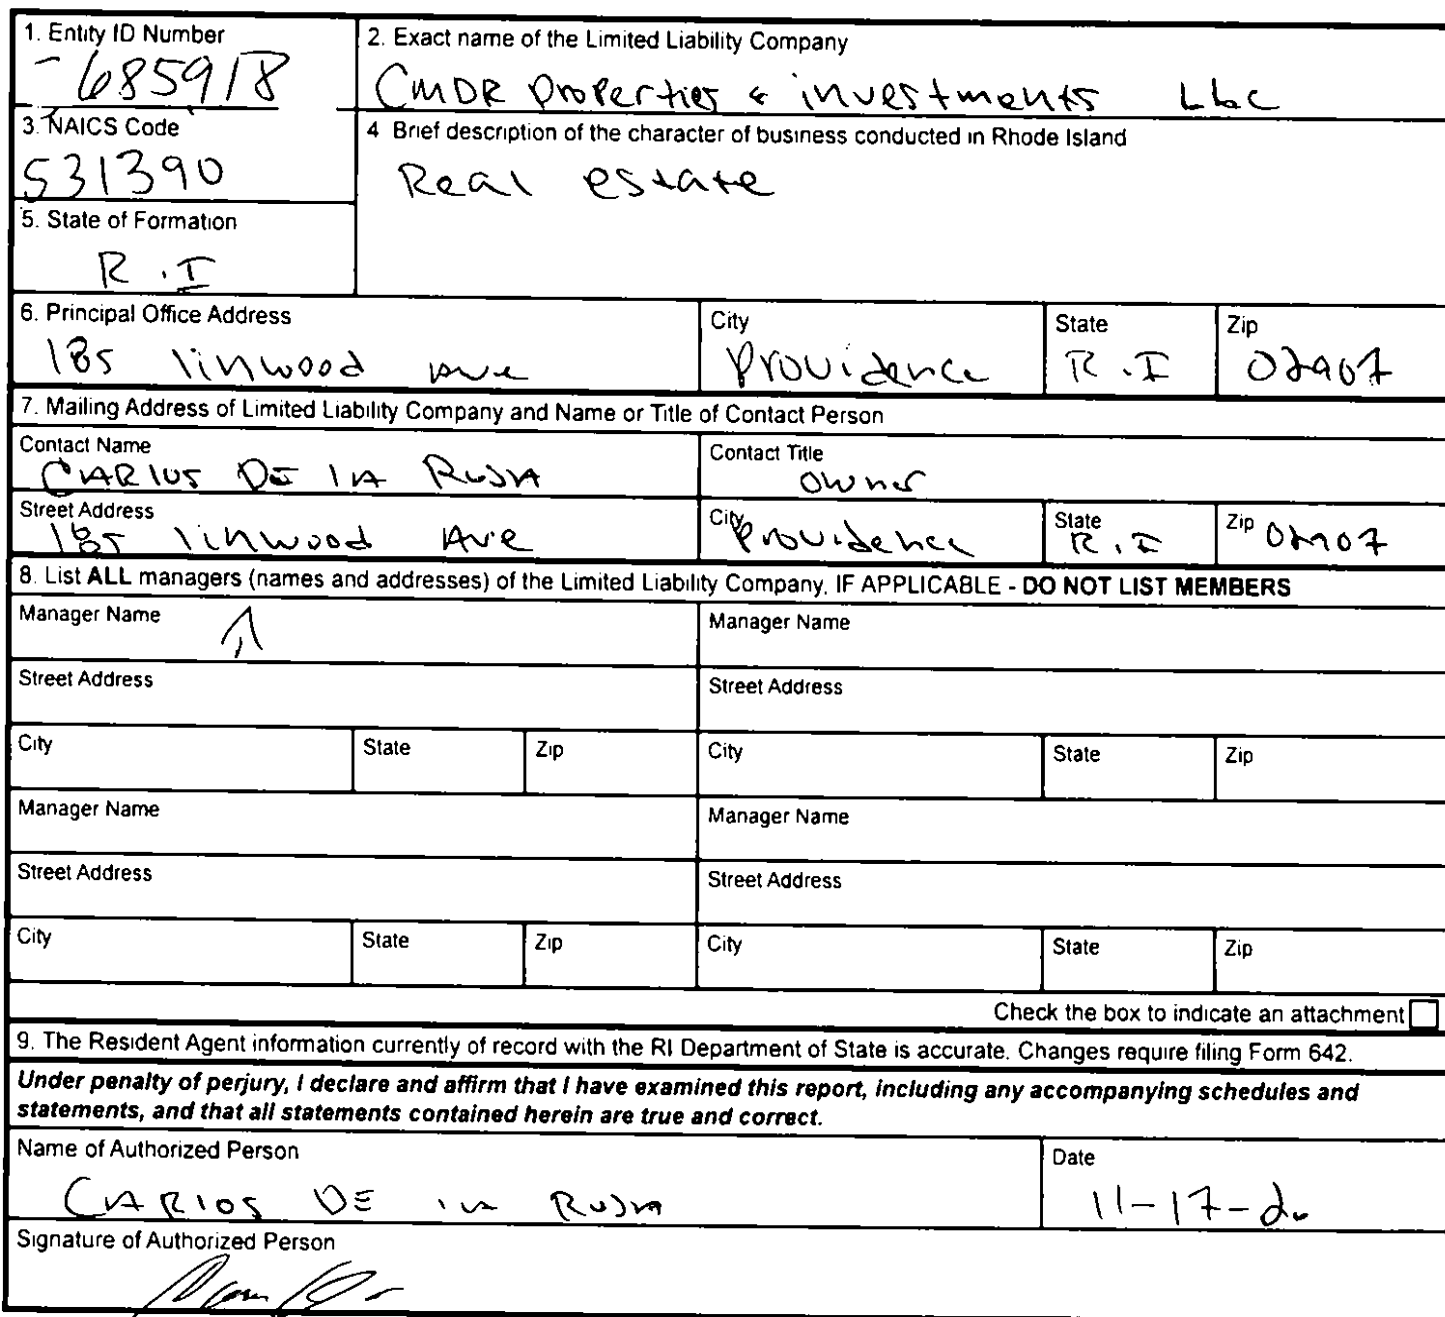 1. Entity ID Number
685918
2. Exact name of the Limited Liability Company
CMDR Properties & investments LLC
3. NAICS Code
531390
4 Brief description of the character of business conducted in Rhode Island
Real estate
5. State of Formation
R.I
6. Principal Office Address
185 linwood Ave
City
Providence
State
R.I
Zip
02907
7. Mailing Address of Limited Liability Company and Name or Title of Contact Person
Contact Name
CARlos DE lA
Contact Title
owner
Street Address
185 linwood Ave
City
Providence
State
R.I
Zip
02907
8. List ALL managers (names and addresses) of the Limited Liability Company, IF APPLICABLE - DO NOT LIST MEMBERS
Manager Name
Manager Name
Street Address
Street Address
City State Zip City State Zip
Manager Name
Manager Name
Street Address
Street Address
City State Zip City State Zip
Check the box to indicate an attachment
9. The Resident Agent information currently of record with the RI Department of State is accurate. Changes require filing Form 642.
Under penalty of perjury, I declare and affirm that I have examined this report, including any accompanying schedules and
statements, and that all statements contained herein are true and correct.
Name of Authorized Person
CARlos DE lA
Date
11-17-20
Signature of Authorized Person